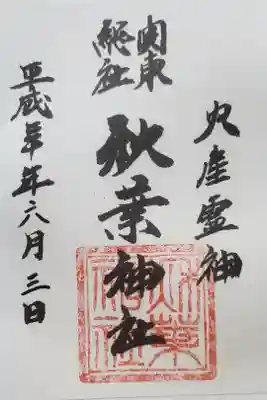 火産霊神
関東
総社
秋葉神社
平成年六月三日